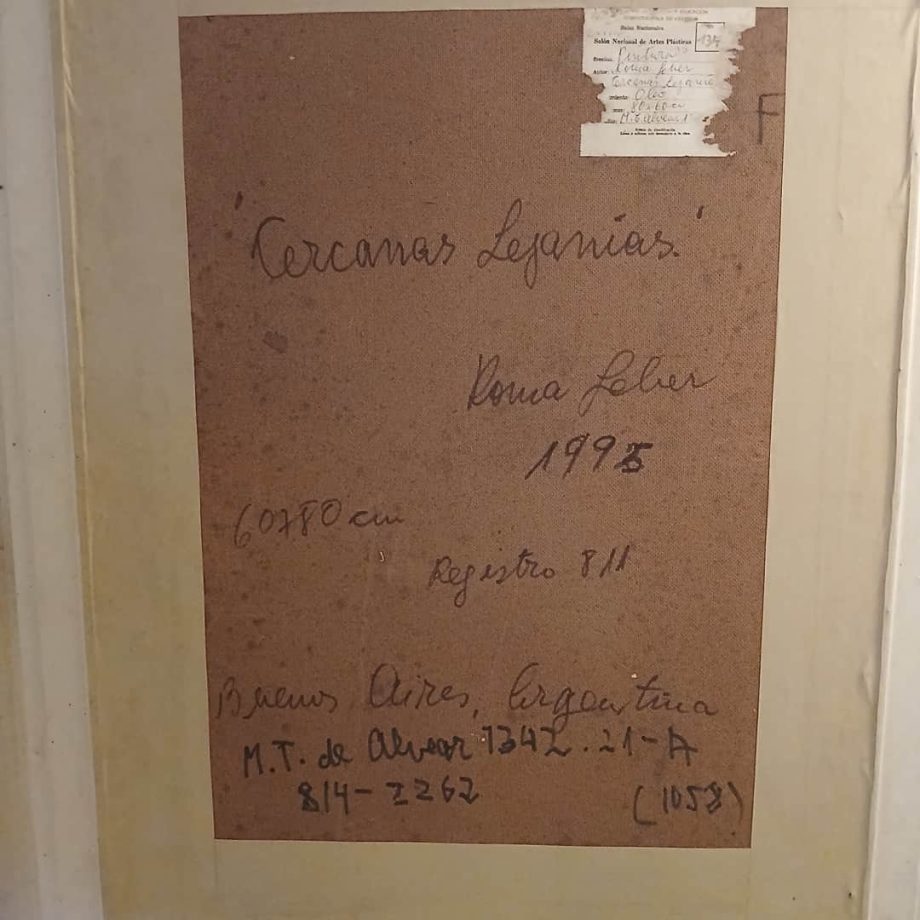 Salas Nacionales
Salón Nacional de Artes Plásticas
134
Pintura
Autor: Roma Geber
Cercanas Lejanías
Oleo
80x60 cm
M.T. Alvear 1
F
'Cercanas Lejanías.'
Roma Geber
1995
60x80 cm
Registro 811
Buenos Aires, Argentina
M.T. de Alvear 1342. 21-A
814-2262
(1058)